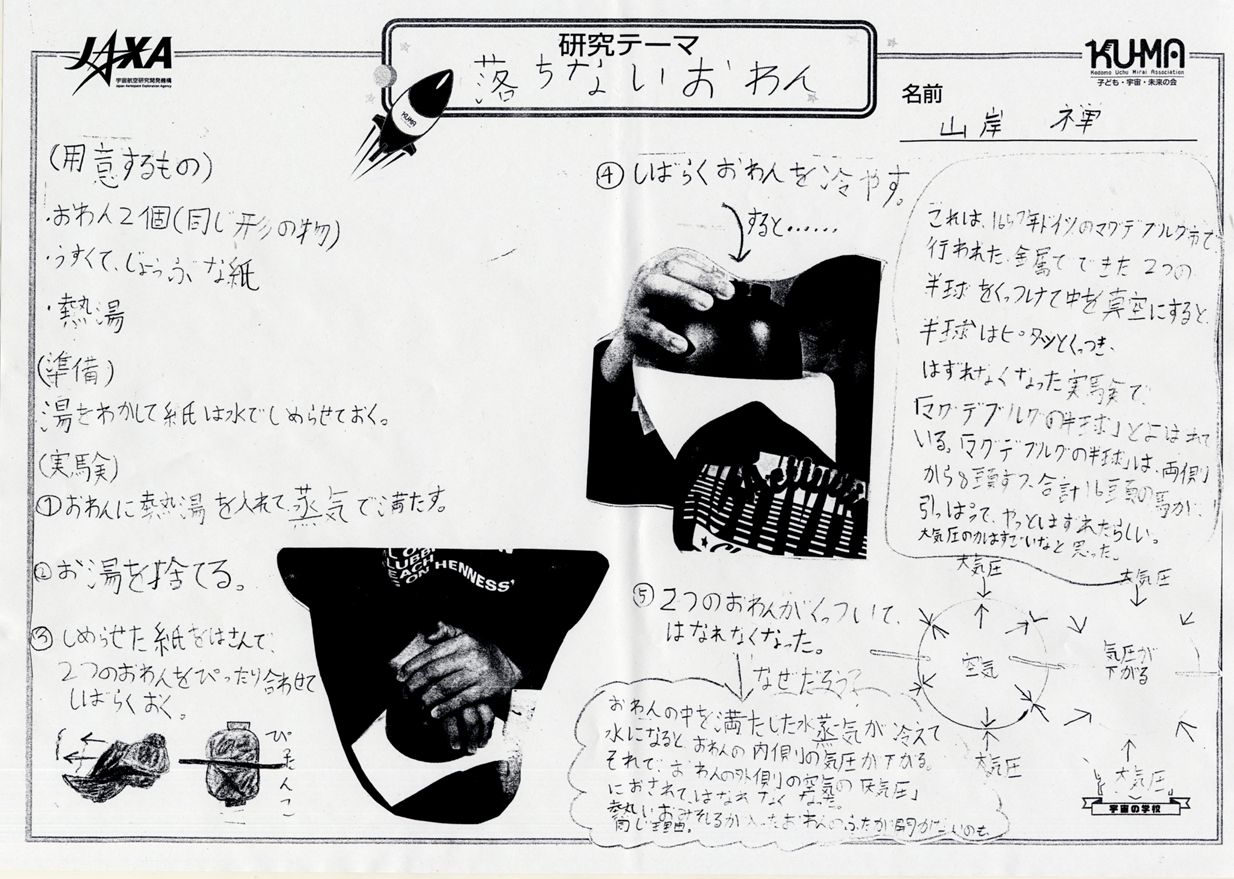 JAXA
宇宙航空研究開発機構
Japan Aerospace Exploration Agency
研究テーマ
落ちないおわん
KUMA
KU-MA
Kodomo Uchu Mirai Association
子ども・宇宙・未来の会
名前
山岸 禅
(用意するもの)
・おわん2個(同じ形の物)
・うすくて、じょうぶな紙
・熱湯
(準備)
湯をわかして紙は水でしめらせておく。
(実験)
①おわんに熱湯を入れて、蒸気で満たす。
②お湯を捨てる。
③しめらせた紙をはさんで、
2つのおわんをぴったり合わせて
しばらくおく。
ぴったんこ
HENNESS
④しばらくおわんを冷やす。
すると……
⑤2つのおわんがくっついて、
はなれなくなった。
なぜだろう?
おわんの中を満たした水蒸気が冷えて
水になると、おわんの内側の気圧が下がる。
それで、おわんの外側の空気の「大気圧」
におされて、はなれなくなった。
熱いおみそしるが入ったおわんのふたが開かないのも、
同じ理由。
これは、1657年ドイツのマグデブルグ市で
行われた、金属でできた2つの
半球をくっつけて中を真空にすると、
半球はピタッとくっつき、
はずれなくなった実験で、
「マグデブルグの半球」とよばれて
いる。「マグデブルグの半球」は、両側
から8頭ずつ、合計16頭の馬が、
引っぱって、やっとはずれたらしい。
大気圧の力はすごいなと思った。
大気圧
大気圧
空気
気圧が
下がる
大気圧
大気圧
宇宙の学校